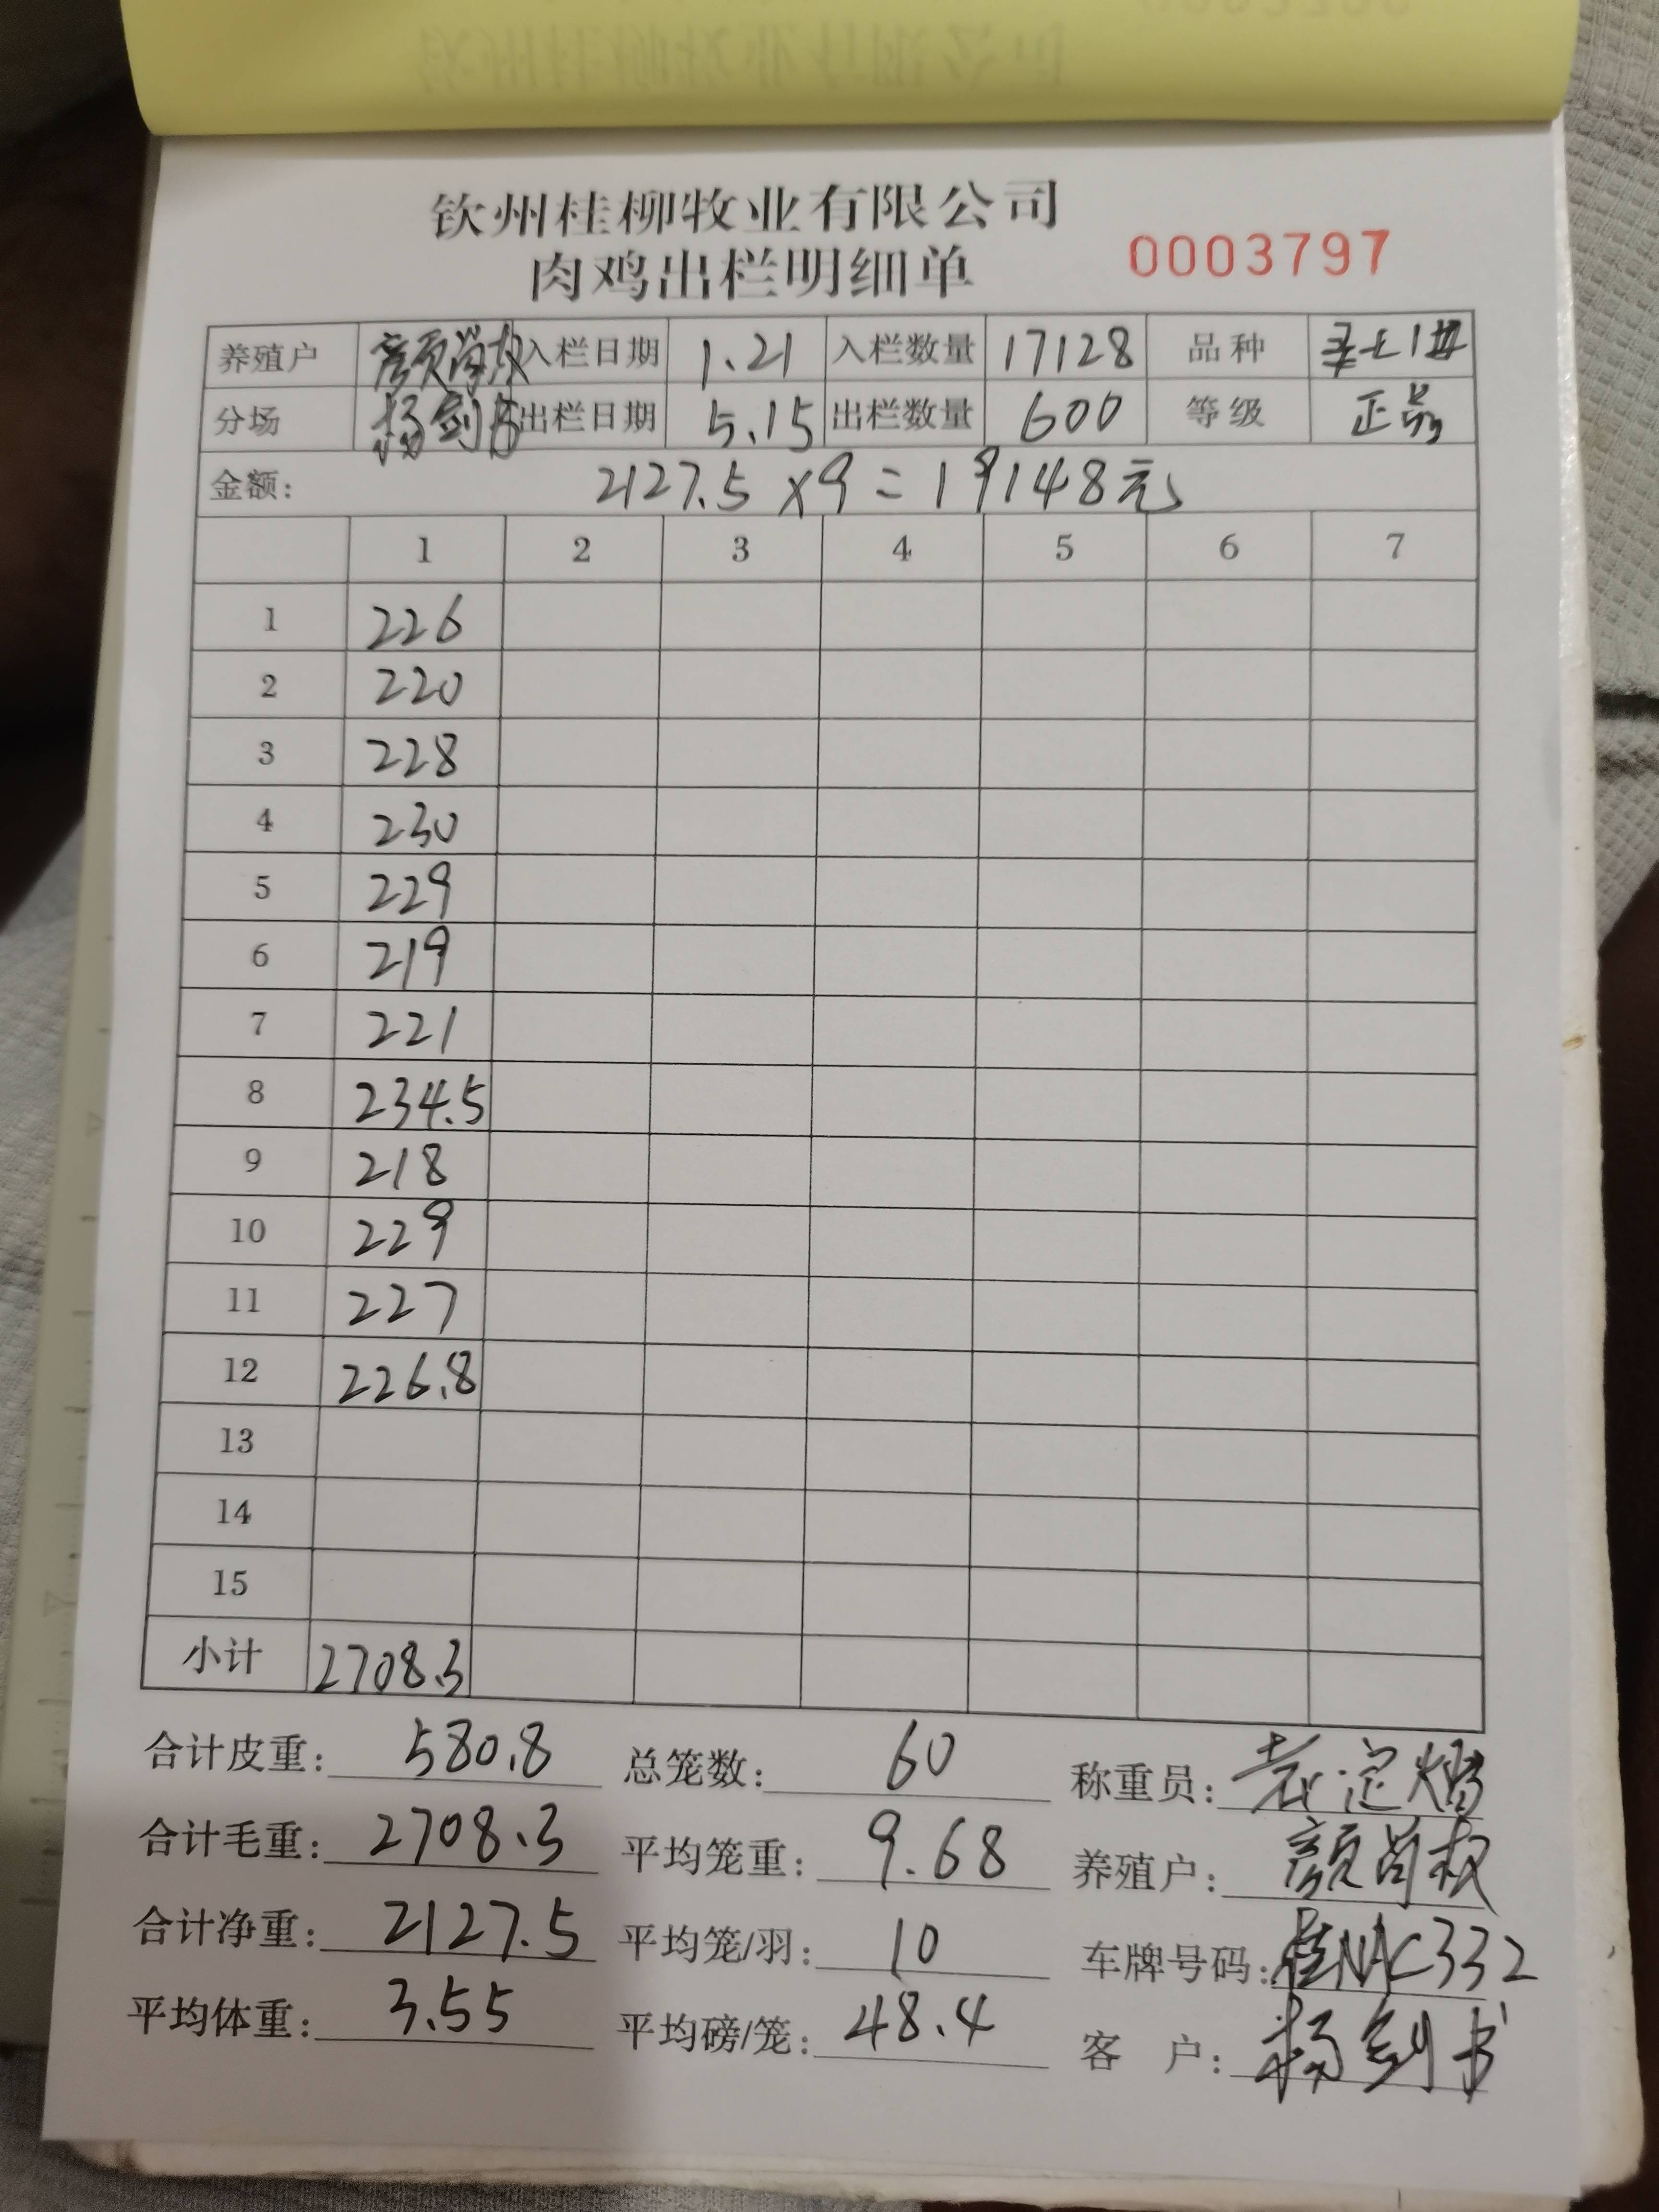 钦州桂柳牧业有限公司
肉鸡出栏明细单 0003797
养殖户 颜尚权 入栏日期 1.21 入栏数量 17128 品种
分场 杨剑书 出栏日期 5.15 出栏数量 600 等级 正品
金额: 2127.5×9=19148元
1 2 3 4 5 6 7
1 226
2 220
3 228
4 230
5 229
6 219
7 221
8 234.5
9 218
10 229
11 227
12 226.8
13
14
15
小计 2708.3
合计皮重: 580.8 总笼数: 60 称重员:
合计毛重: 2708.3 平均笼重: 9.68 养殖户: 颜尚权
合计净重: 2127.5 平均笼/羽: 10 车牌号码: 桂NAC332
平均体重: 3.55 平均磅/笼: 48.4 客 户: 杨剑书